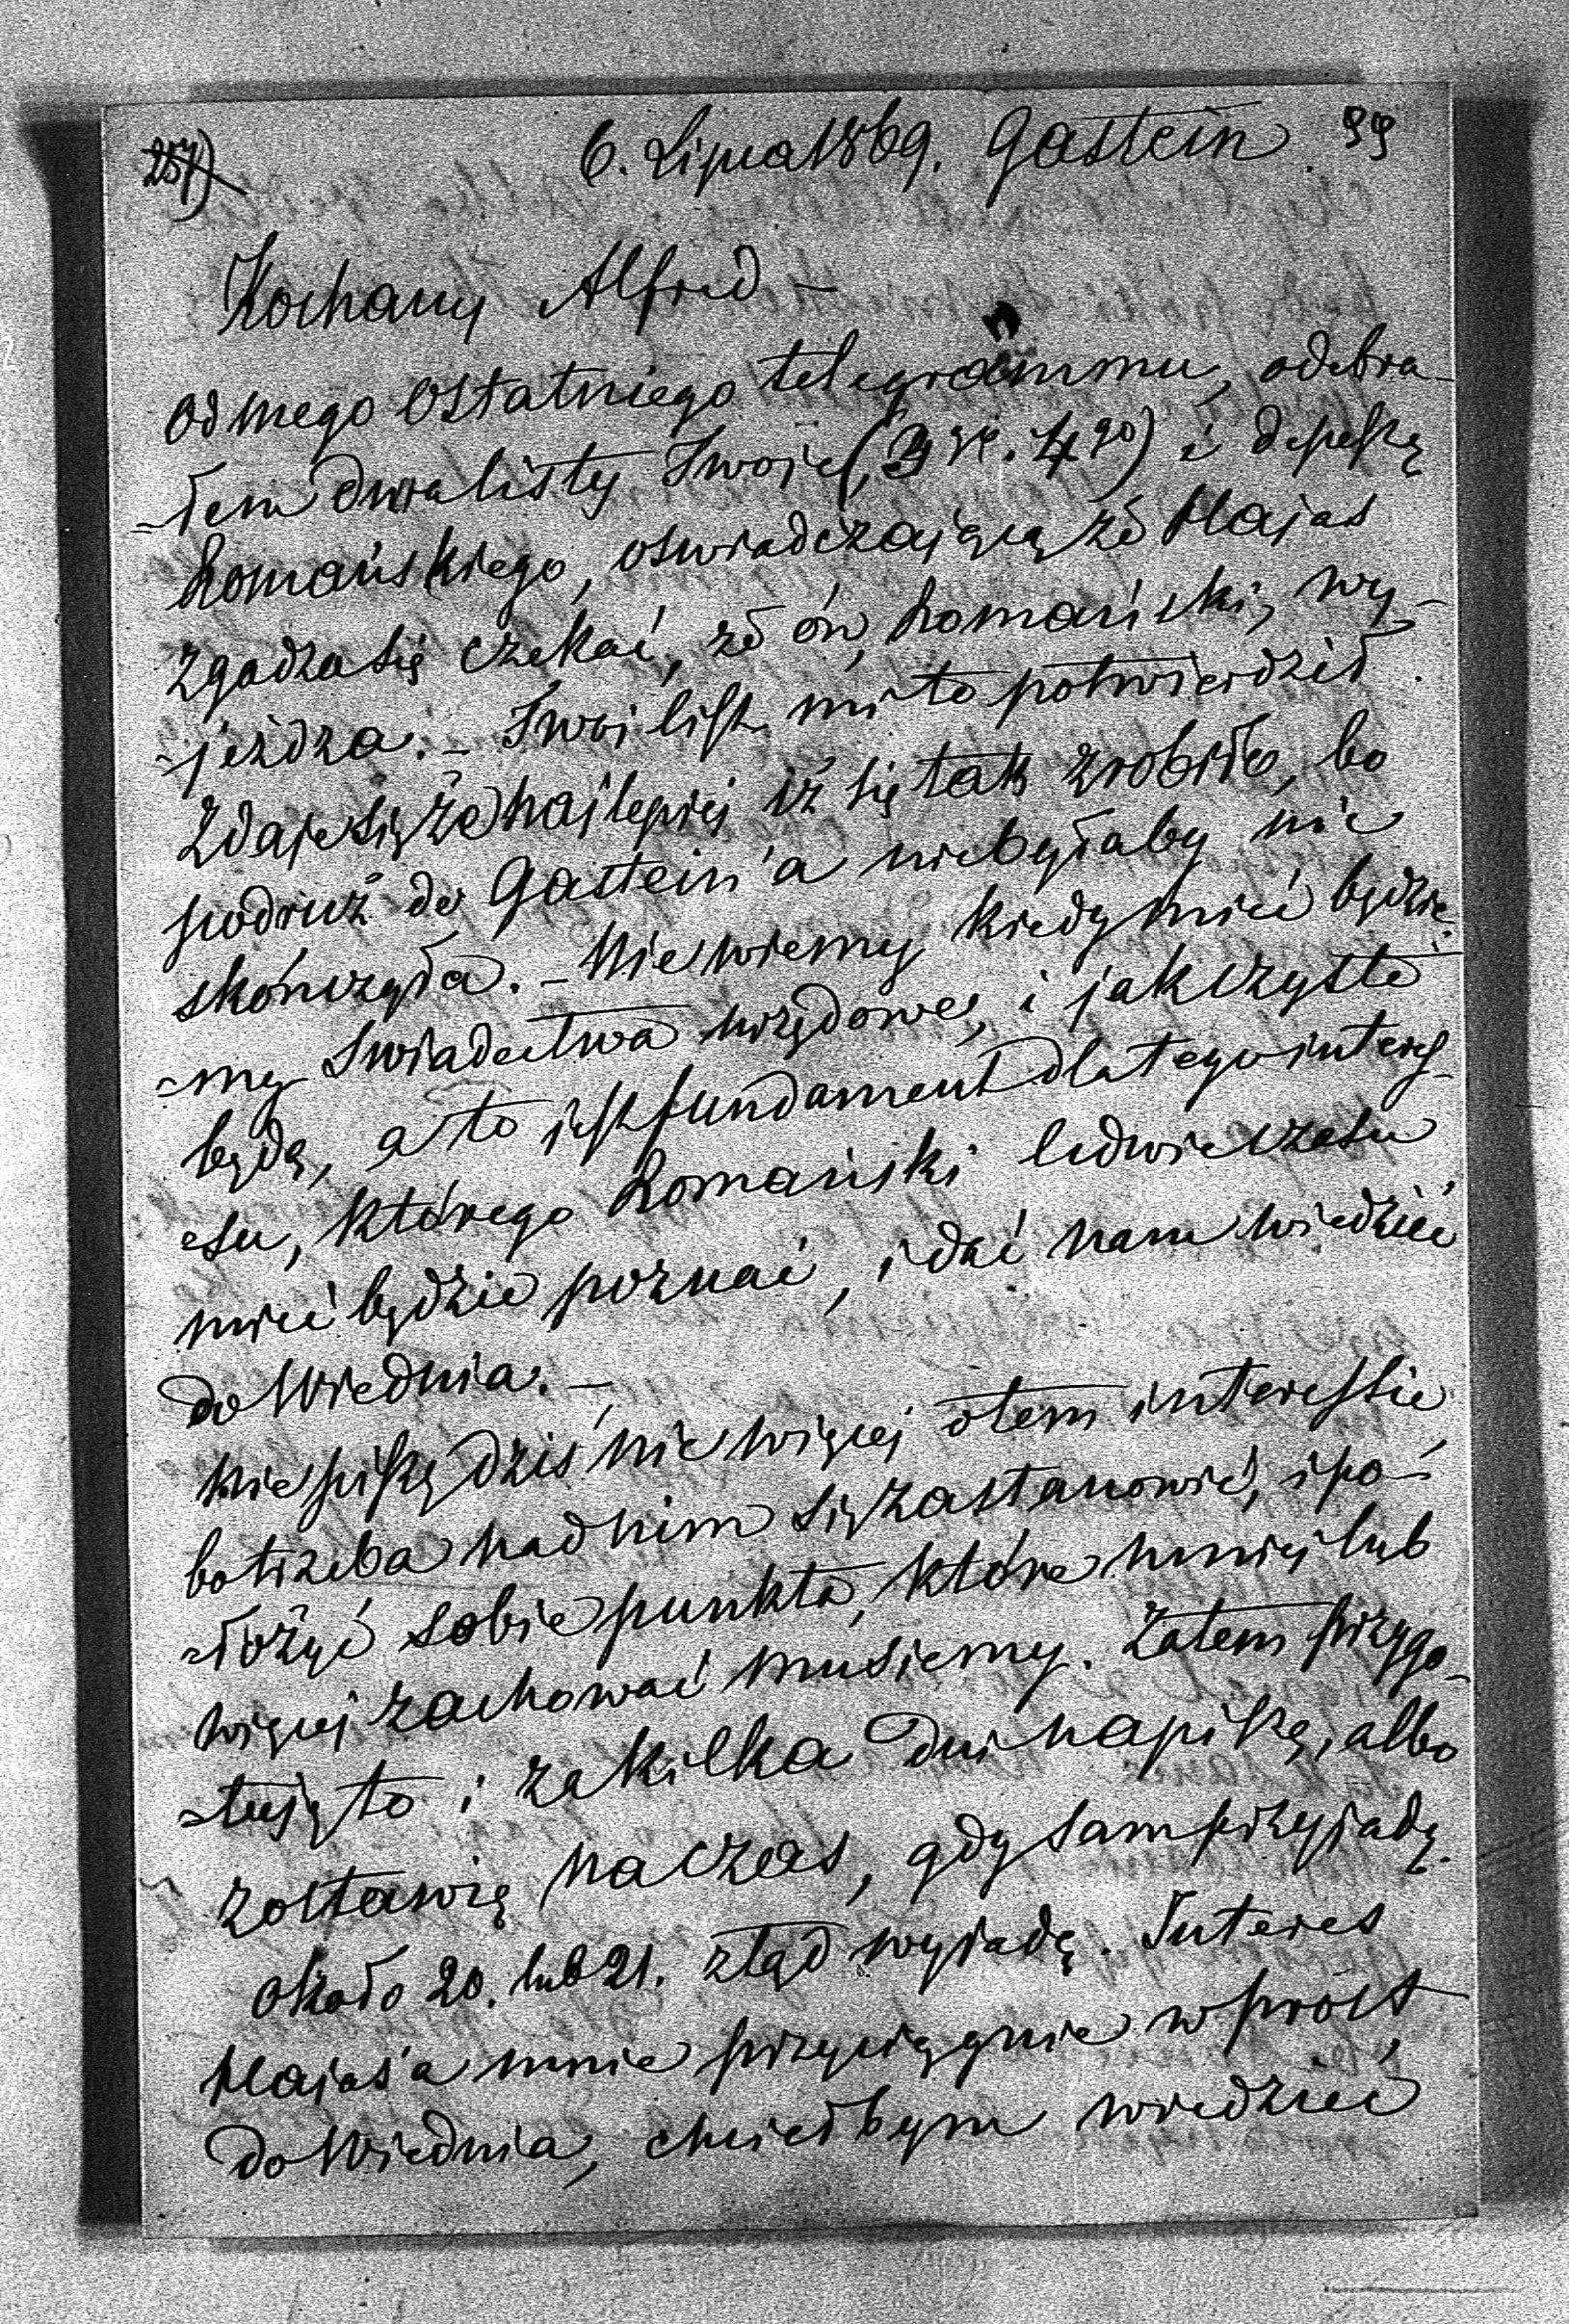 257) 6. Lipca 1869. Gastein. 99
Kochany Alfred –
od mego ostatniego telegrammu, odebra-
-łem dwa listy Twoje (3go. 4go) i depeszę
Łomańskiego, oswiadczającą że Hajas
zgadza się czekać, że ów Łomański, wy-
-jeżdza. – Twój list mi to potwierdził.
Zdaje się że najlepiej iż się tak zrobiło, bo
podruż do Gastein'a niebyłaby nic
skończyła. – Nie wiemy kiedy mieć będzie-
-my swiadectwa urzędowe, i jak czyste
będą, a to jest fundament dla tego inter-
esu, którego Łomański ledwie czasu
mieć będzie poznać, i dać nam wiedzieć
do Wiednia. –
Nie piszę dziś nic więcej o tem interessie,
bo trzeba nad nim się zastanowić, i po-
-łożyć sobie punkta, które mniej lub
więcej zachować musiemy. Zatem przygo-
-tuję to i za kilka dni napiszę, albo
zostawię na czas, gdy sam przyjadę.
Około 20. lub 21. ztąd wyjadę. Interes
Hajas'a mnie przyciągnie wprost
do Wiednia, chciełbym wiedzieć